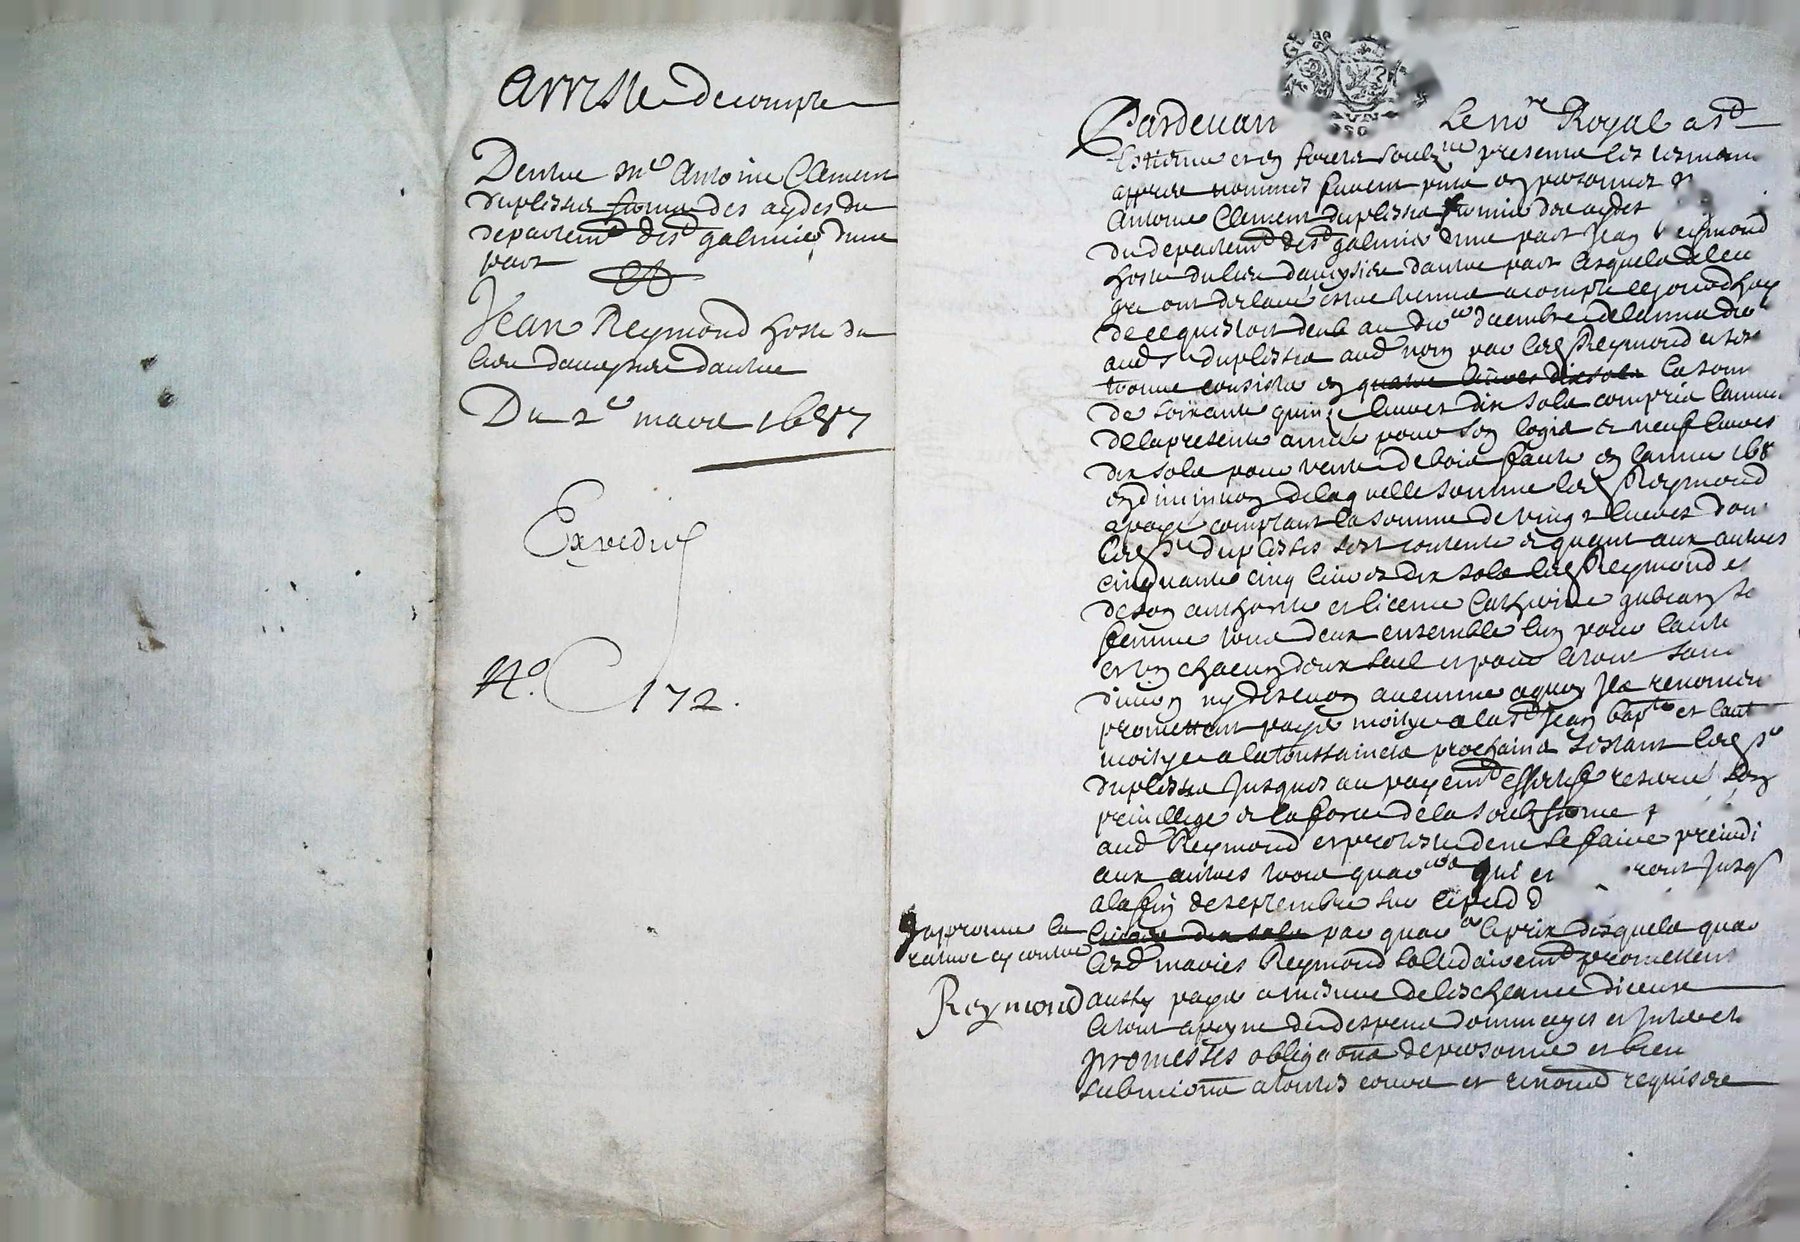 Arreste de compte
Dentre Mre Antoine Clement
duplessis fermier des aydes du
departemt de st galmier dune
part
Et
Jean Reymond hoste du
lieu daveysieu dautre
Du 2e mars 1687
Expedié
No. 172.
Pardevant Le nore Royal a st
Estienne en forest soubzne presents les tesmoins
apres nommes furent
Antoine Clement duplessis fermier des aydes
du departemt de st galmier dune part Jean Reymond
hoste du lieu daveysieu dautre part lesquels de leur
gre ont declaré estre venus a compte
de ce qui estoit deub au decembre de lannee dre
aud sr duplessis aud nom par led Reymond
trouve consister en quatre livres dix sols la som
de soixante quinze livres dix sols compris lannee
de la presente annee pour son logis et neuf livres
dix sols pour vente de vin faite en lannee 168
en diminuon de laquelle somme led Reymond
a paye comptant la somme de vingt livres dont
led sr duplessis sest contente et quant aux autres
cinquante cinq livres dix sols led Reymond et
de son authorite et licence Catherine
femme tous deux ensemble lun pour lautre
et un chacun deux seul et pour le tout sans
divion ny discuon aucune a quoy ils renoncent
promettent payer moitye a la st Jean bapte et lautre
moitye a la toussaincts prochains sestant led sr
duplessis jusques au payemt effectif reservé son
privillege et la force de la soubz ferme
aud Reymond et proteste de ne se faire prejudi
aux autres trois quarers qui
a la fin de septembre sur le pied d
livres dix sols par quarer le prix desquels quar
lesd maries Reymond sollidairemt promettent
aussy payer a mesure de lescheance diceux
le tout a peyne de despens dommages et interests
promesses obligaons de personne et biens
submions a toutes cours et renond requises
Japprouve la
rature cy contre
Reymond